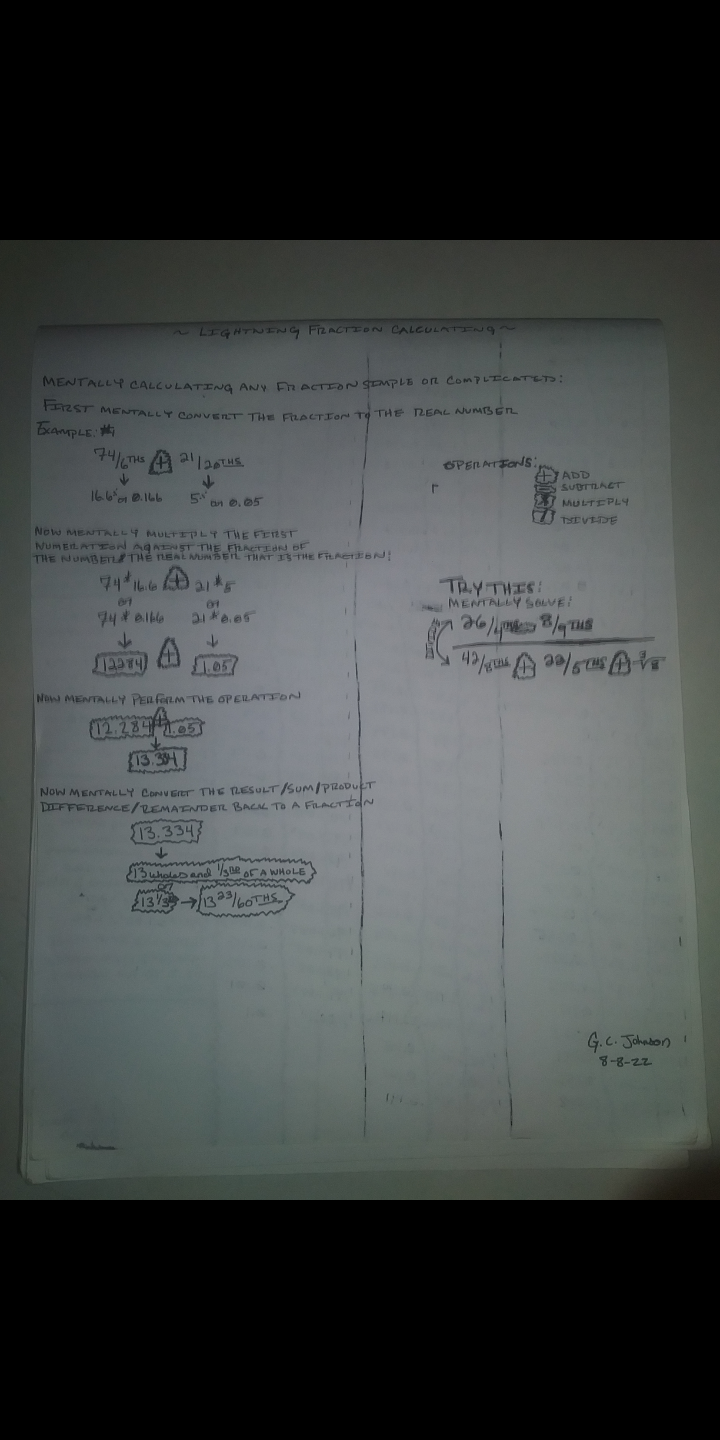 ~ LIGHTNING FRACTION CALCULATING ~
MENTALLY CALCULATING ANY FRACTION SIMPLE OR COMPLICATED:
FIRST MENTALLY CONVERT THE FRACTION TO THE REAL NUMBER
EXAMPLE:
74/6THS + 21/20THS
16.6 or 0.166 5 or 0.05
NOW MENTALLY MULTIPLY THE FIRST
NUMERATION AGAINST THE FRACTION OF
THE NUMBER/THE REAL NUMBER THAT IS THE FRACTION:
74*16.6 + 21*5
or or
74*0.166 21*0.05
12284 + 1.05
NOW MENTALLY PERFORM THE OPERATION
12.284 + 1.05
13.334
NOW MENTALLY CONVERT THE RESULT/SUM/PRODUCT
DIFFERENCE/REMAINDER BACK TO A FRACTION
13.334
13 wholes and 1/3RD OF A WHOLE
or
13 1/3 → 13 23/60THS
OPERATIONS:
+ ADD
SUBTRACT
* MULTIPLY
/ DIVIDE
TRY THIS:
MENTALLY SOLVE:
26/4THS 8/9THS
42/8THS + 22/5THS + ∛8
G.C. Johnson
8-8-22